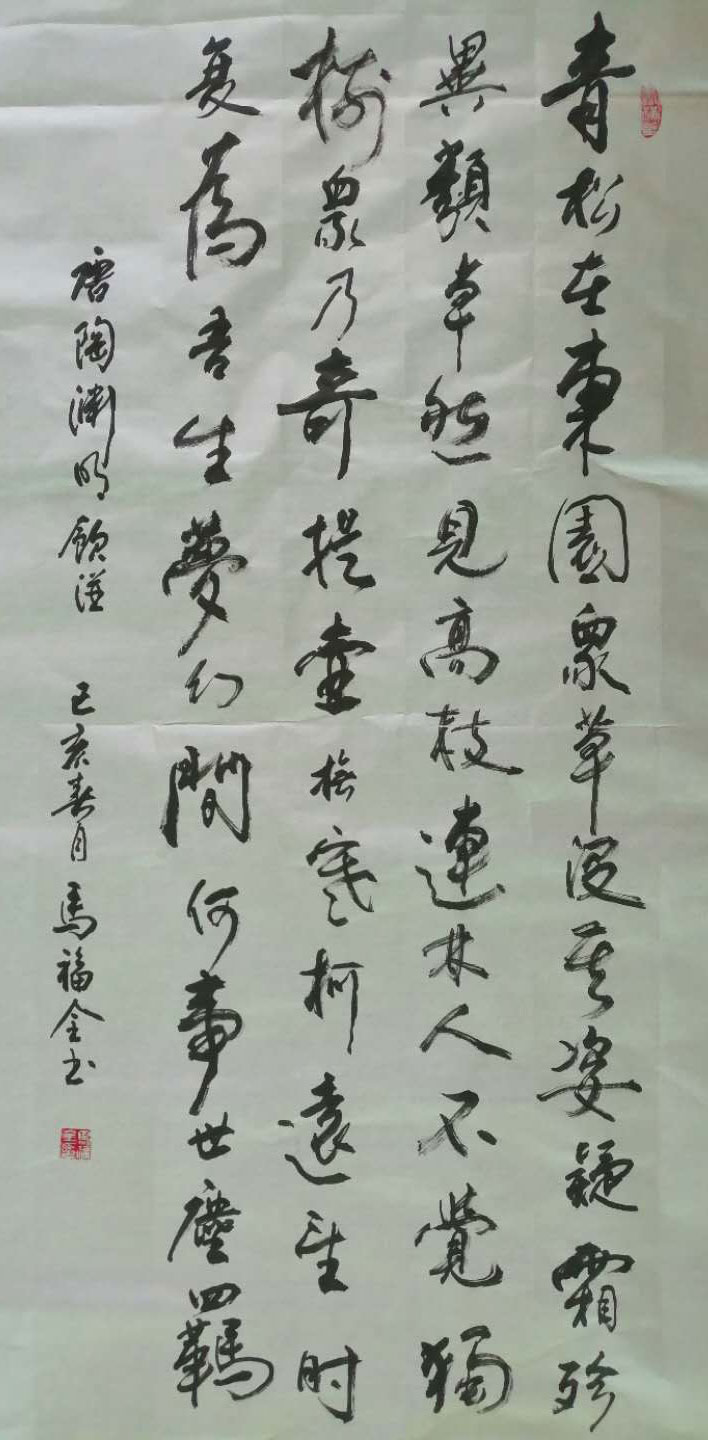 青松在東園眾草没其姿疑霜殄
異類卓然見高枝連林人不覺獨
樹衆乃奇提壺撫寒柯遠望时
复為吾生夢幻間何事世塵羈
唐陶渊明飲酒 己亥春月 馬福全书